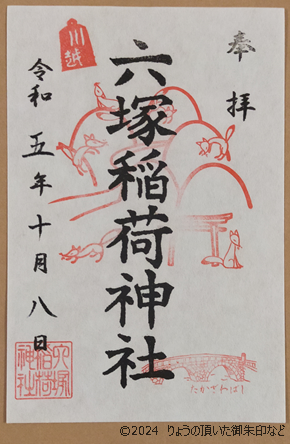 奉拝
川越
六塚稲荷神社
令和五年十月八日
六塚稲荷神社
たかざわばし
©2024 りょうの頂いた御朱印など